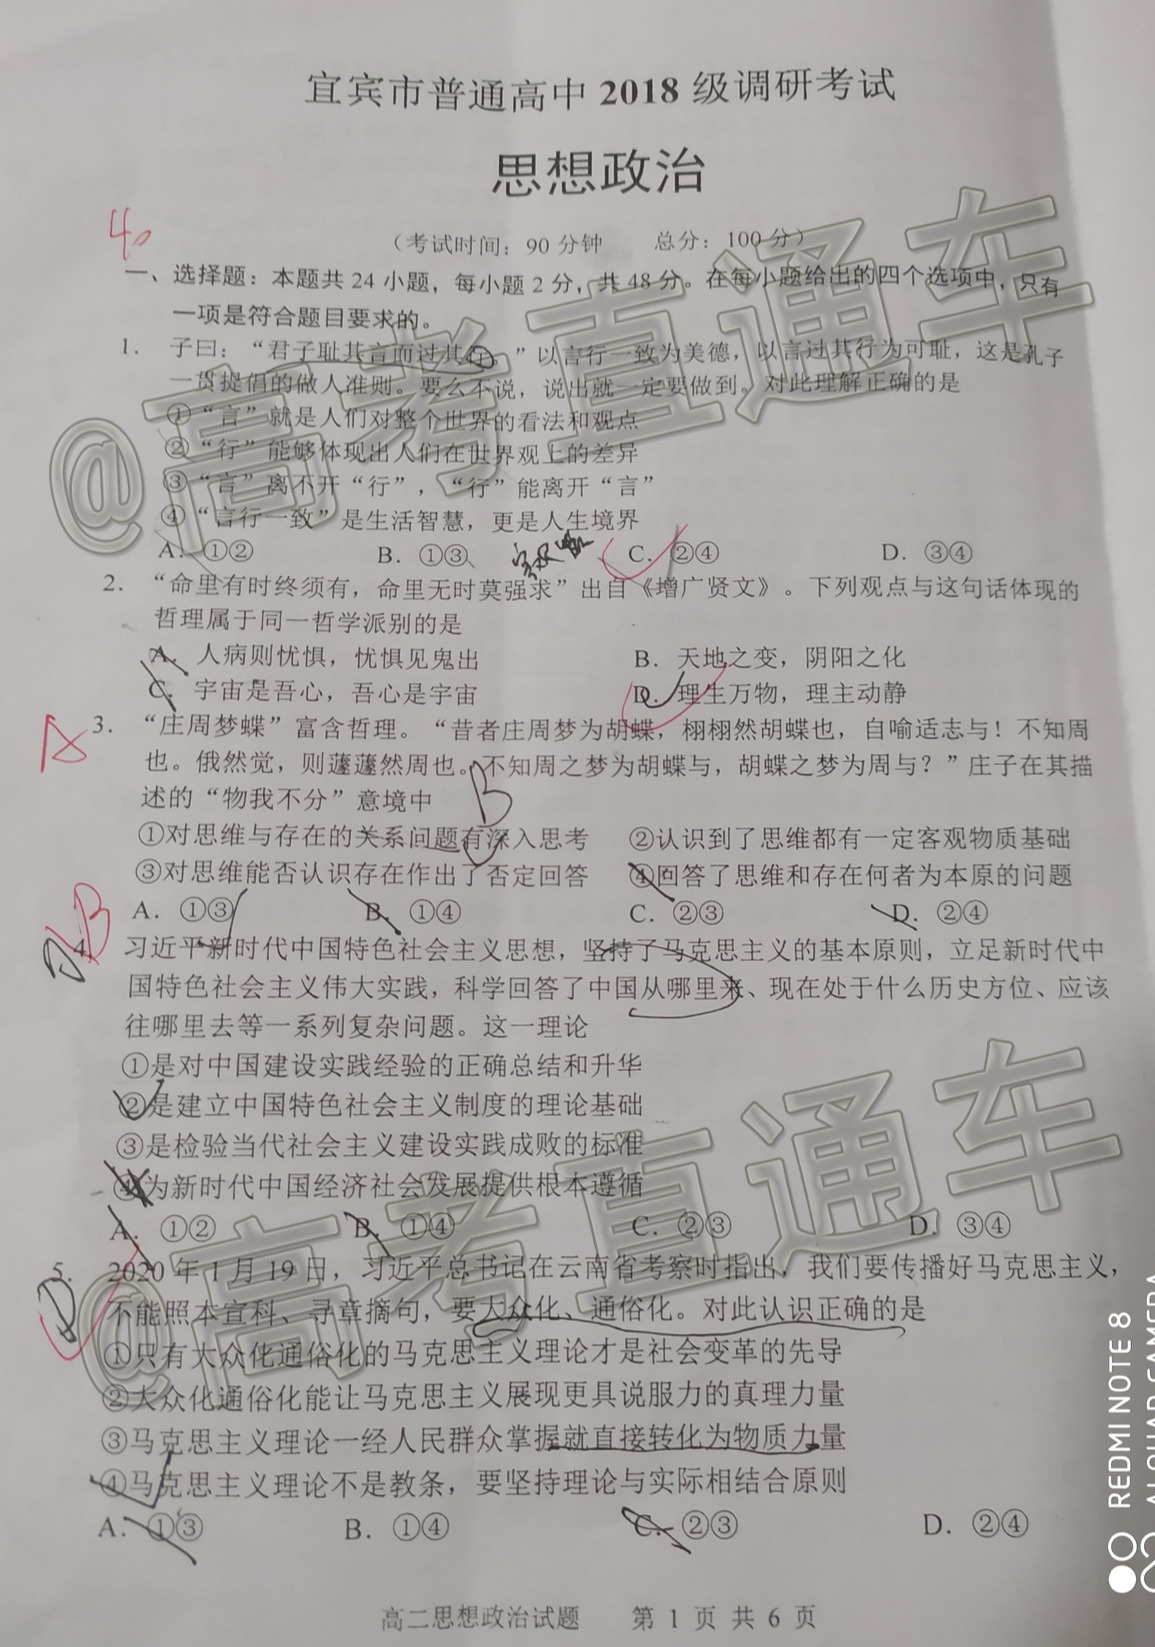 宜宾市普通高中 2018 级调研考试
思想政治
40
（考试时间：90 分钟 总分：100 分）
一、选择题：本题共 24 小题，每小题 2 分，共 48 分。在每小题给出的四个选项中，只有
一项是符合题目要求的。
1. 子曰：“君子耻其言而过其行。”以言行一致为美德，以言过其行为可耻，这是孔子
一贯提倡的做人准则。要么不说，说出就一定要做到。对此理解正确的是
①“言”就是人们对整个世界的看法和观点
②“行”能够体现出人们在世界观上的差异
③“言”离不开“行”，“行”能离开“言”
④“言行一致”是生活智慧，更是人生境界
A. ①② B. ①③ C. ②④ D. ③④
2. “命里有时终须有，命里无时莫强求”出自《增广贤文》。下列观点与这句话体现的
哲理属于同一哲学派别的是
A. 人病则忧惧，忧惧见鬼出 B. 天地之变，阴阳之化
C. 宇宙是吾心，吾心是宇宙 D. 理生万物，理主动静
A
3. “庄周梦蝶”富含哲理。“昔者庄周梦为胡蝶，栩栩然胡蝶也，自喻适志与！不知周
也。俄然觉，则蘧蘧然周也。不知周之梦为胡蝶与，胡蝶之梦为周与？”庄子在其描
述的“物我不分”意境中
B
①对思维与存在的关系问题有深入思考 ②认识到了思维都有一定客观物质基础
③对思维能否认识存在作出了否定回答 ④回答了思维和存在何者为本原的问题
A. ①③ B. ①④ C. ②③ D. ②④
B
4. 习近平新时代中国特色社会主义思想，坚持了马克思主义的基本原则，立足新时代中
国特色社会主义伟大实践，科学回答了中国从哪里来、现在处于什么历史方位、应该
往哪里去等一系列复杂问题。这一理论
①是对中国建设实践经验的正确总结和升华
②是建立中国特色社会主义制度的理论基础
③是检验当代社会主义建设实践成败的标准
④为新时代中国经济社会发展提供根本遵循
A. ①② B. ①④ C. ②③ D. ③④
D
5. 2020 年 1 月 19 日，习近平总书记在云南省考察时指出，我们要传播好马克思主义，
不能照本宣科、寻章摘句，要大众化、通俗化。对此认识正确的是
①只有大众化通俗化的马克思主义理论才是社会变革的先导
②大众化通俗化能让马克思主义展现更具说服力的真理力量
③马克思主义理论一经人民群众掌握就直接转化为物质力量
④马克思主义理论不是教条，要坚持理论与实际相结合原则
A. ①③ B. ①④ C. ②③ D. ②④
高二思想政治试题 第 1 页 共 6 页
@高考直通车
@高考直通车
REDMI NOTE 8
AI QUAD CAMERA